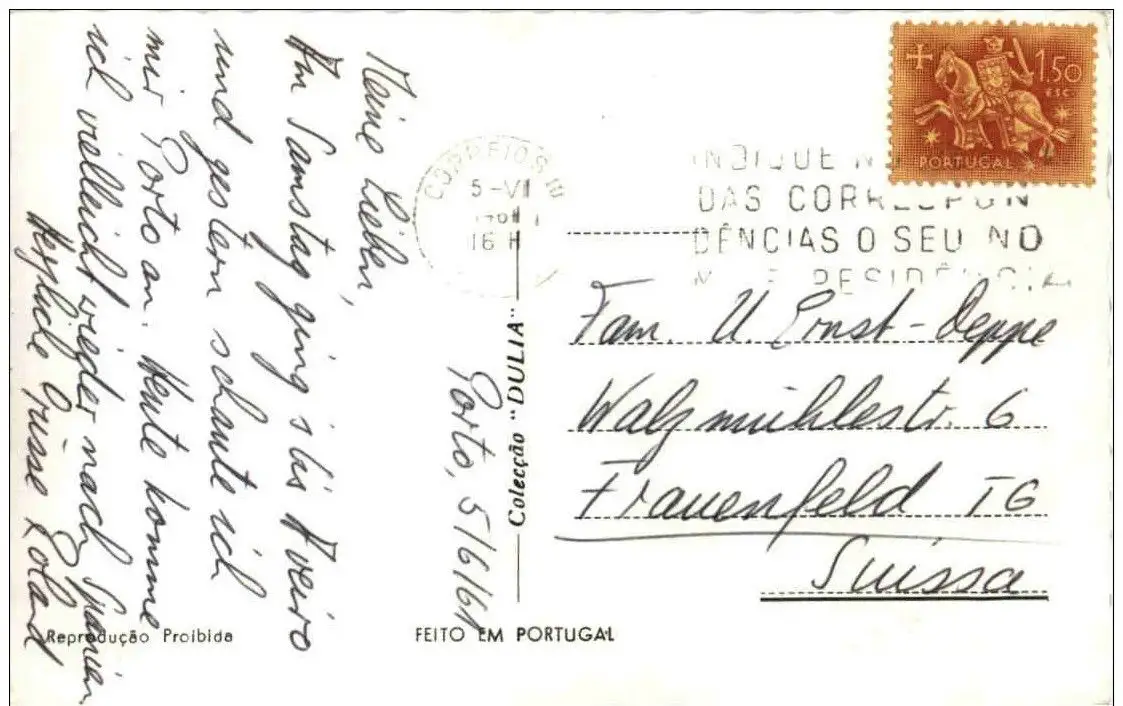 Porto, 5/6/61
Meine Lieben,
Am Samstag ging's bis Aveiro
und gestern schaute ich
mir Porto an. Heute komme
ich vielleicht wieder nach Spanien
Herzliche Grüsse Roland
CORREIOS
5-VI
16 H
INDIQUE N
DAS CORRESPON
DÊNCIAS O SEU NO
M E RESIDÊNCIA
1$50
ESC
PORTUGAL
Fam. U. Ernst-Deppe
Walzmühlestr. 6
Frauenfeld TG
Suissa
Colecção "DULIA"
Reprodução Proibida
FEITO EM PORTUGAL